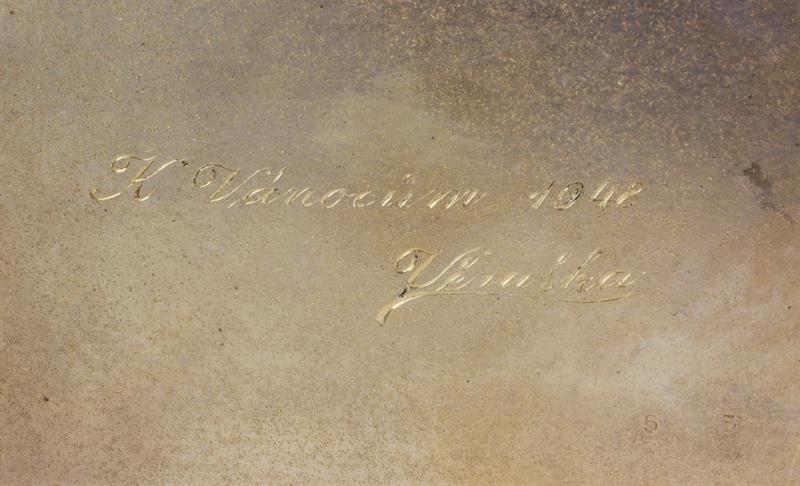 K Vánocům 1948
Věruška
5 3